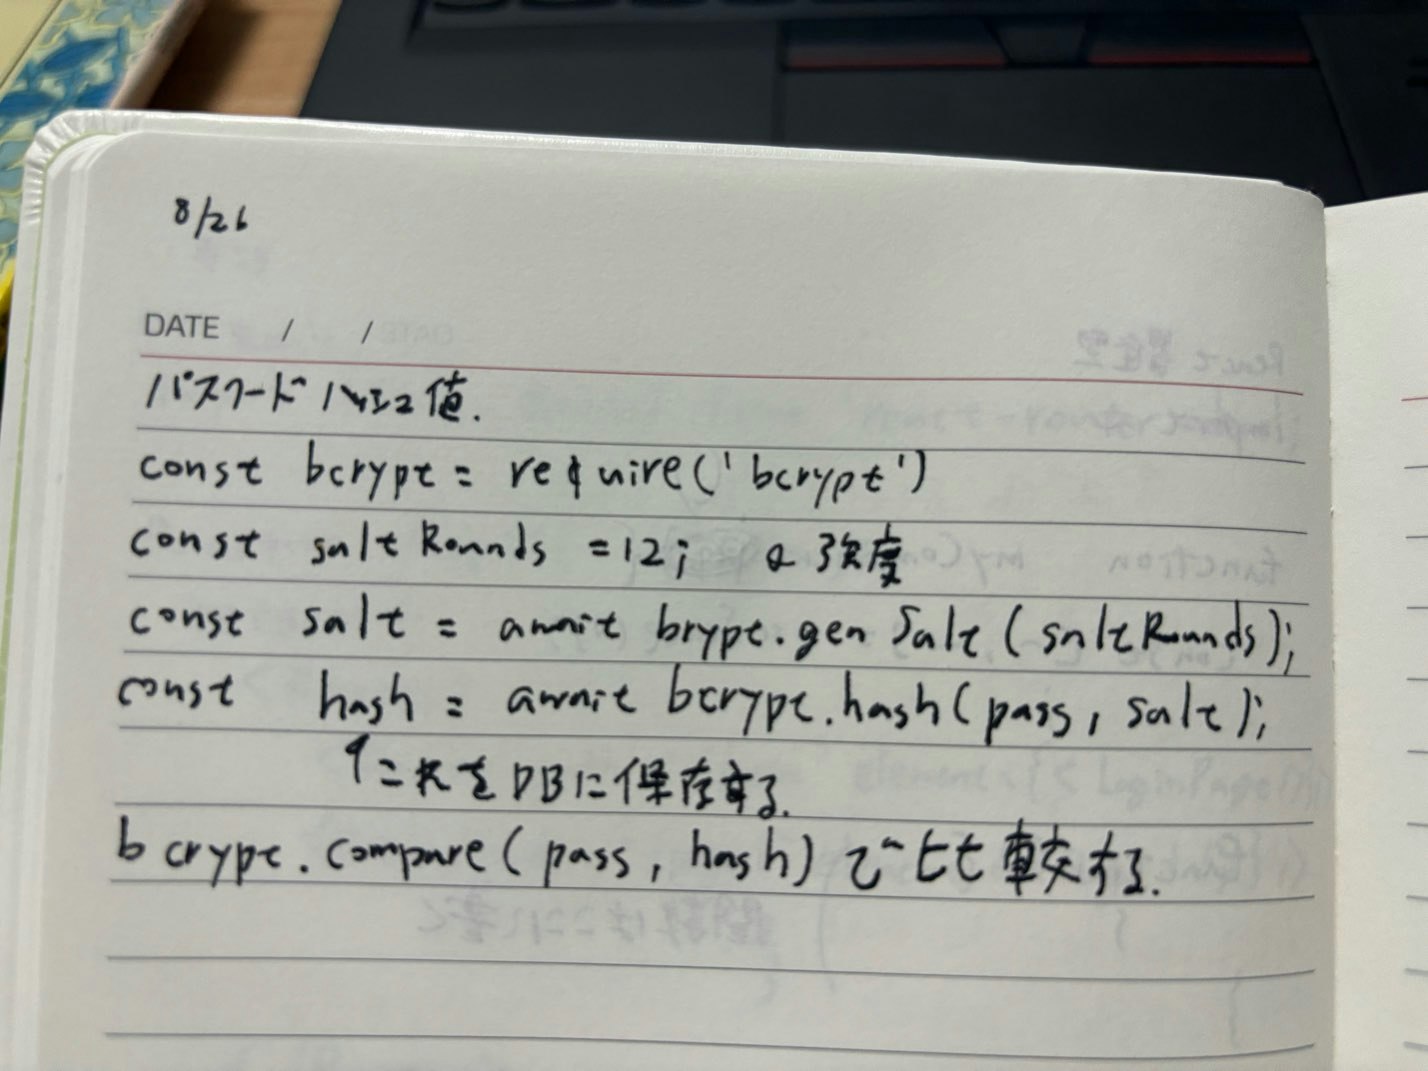 8/26
DATE / /
パスワードハッシュ値.
const bcrypt = require('bcrypt')
const saltRounds = 12; ← 強度
const salt = await brypt.genSalt(saltRounds);
const hash = await bcrypt.hash(pass, salt);
↑これをDBに保存する.
bcrypt.compare(pass, hash) で比較する.